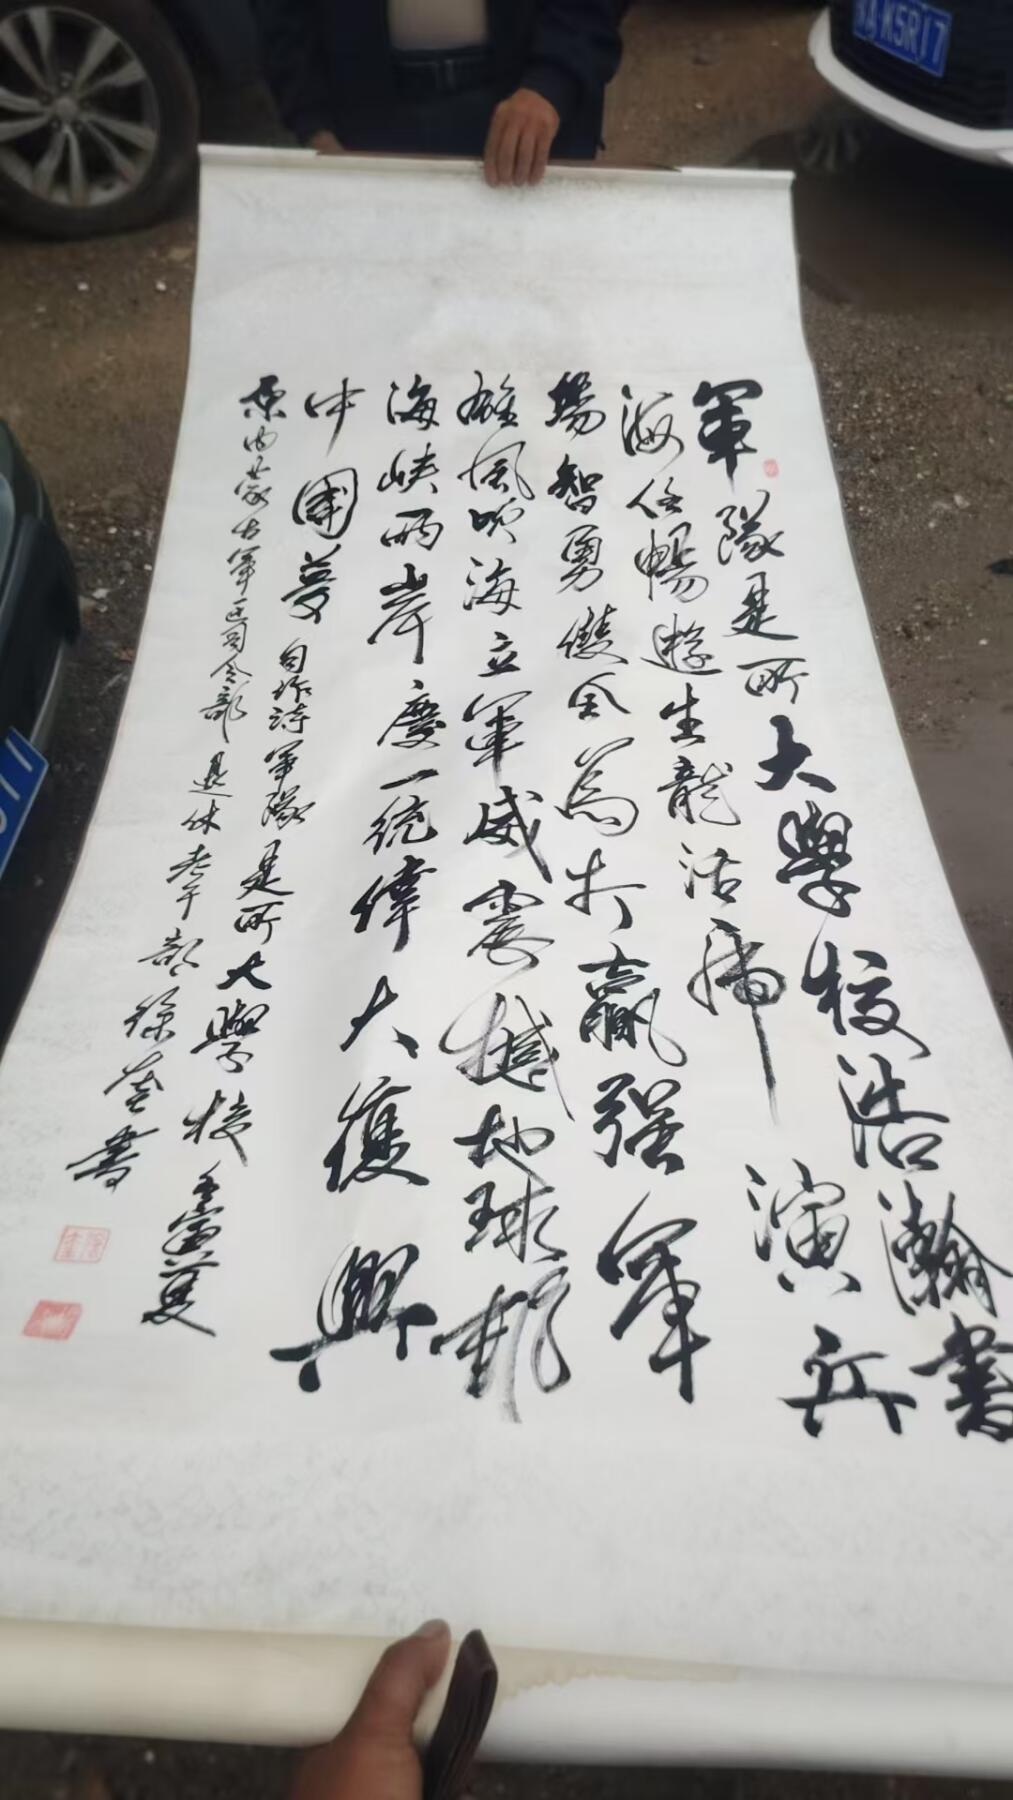 軍隊是所大學校浩瀚書
海任暢遊生龍活虎 演兵
場智勇雙全為打贏强軍
雄風吹海立軍威震撼地球村
海峡兩岸慶一統偉大復興
中國夢 自作詩軍隊是所大學校
原内蒙古軍区司令部退休老干部徐奎書
K5R17